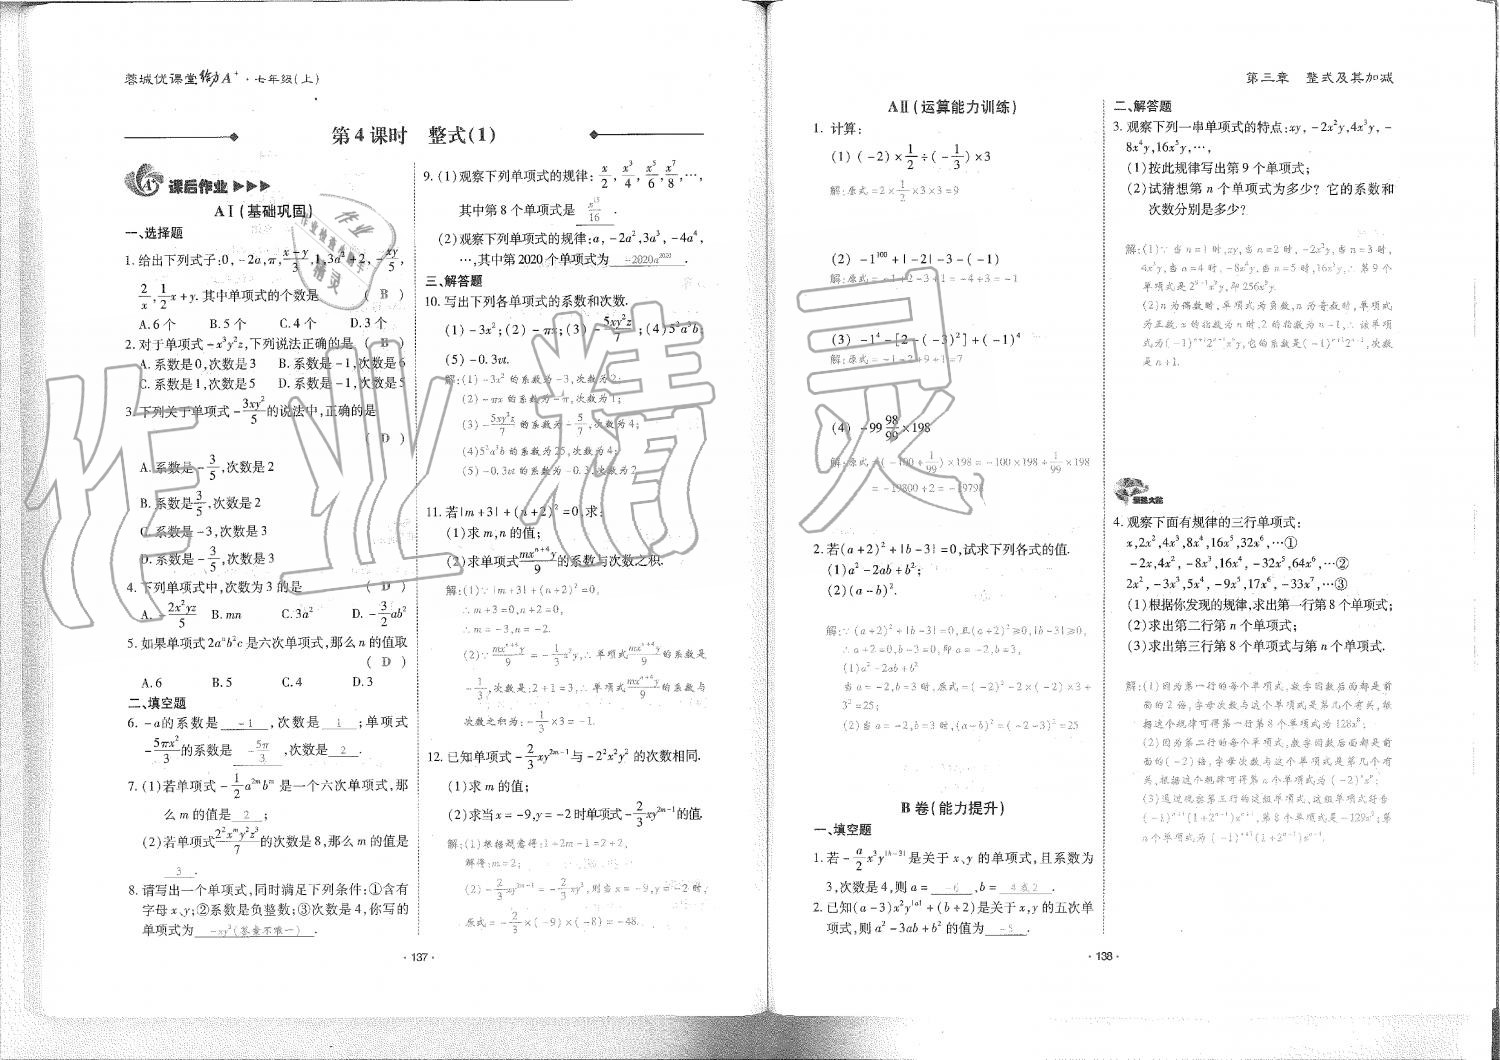 蓉城优课堂给力A⁺·七年级(上)
第4课时 整式(1)
课后作业
AⅠ(基础巩固)
一、选择题
1. 给出下列式子:0,-2a,π,(x-y)/3,1,3a²+2,-xy/5,
2/x,1/2x+y.其中单项式的个数是 ( B )
A.6个 B.5个 C.4个 D.3个
2. 对于单项式-x³y²z,下列说法正确的是 ( B )
A.系数是0,次数是3 B.系数是-1,次数是6
C.系数是1,次数是5 D.系数是-1,次数是5
3. 下列关于单项式-3xy²/5的说法中,正确的是
( D )
A.系数是-3/5,次数是2
B.系数是3/5,次数是2
C.系数是-3,次数是3
D.系数是-3/5,次数是3
4. 下列单项式中,次数为3的是 ( D )
A.-2x²yz/5 B.mn C.3a² D.-3/2ab²
5. 如果单项式2aⁿb²c是六次单项式,那么n的值取
( D )
A.6 B.5 C.4 D.3
二、填空题
6. -a的系数是 -1 ,次数是 1 ;单项式
-5πx²/3的系数是 -5π/3 ,次数是 2 .
7. (1)若单项式-1/2a²ᵐbᵐ是一个六次单项式,那
么m的值是 2 ;
(2)若单项式2²xᵐy²z³/7的次数是8,那么m的值是
3 .
8. 请写出一个单项式,同时满足下列条件:①含有
字母x、y;②系数是负整数;③次数是4,你写的
单项式为 -xy³(答案不唯一) .
9. (1)观察下列单项式的规律:x/2,x³/4,x⁵/6,x⁷/8,…,
其中第8个单项式是 x¹⁵/16 .
(2)观察下列单项式的规律:a,-2a²,3a³,-4a⁴,
…,其中第2020个单项式为 -2020a²⁰²⁰ .
三、解答题
10. 写出下列各单项式的系数和次数.
(1)-3x²;(2)-πx;(3)-5xy²z/7;(4)5²a³b;
(5)-0.3vt.
解:(1)-3x²的系数为-3,次数为2;
(2)-πx的系数为-π,次数为1;
(3)-5xy²z/7的系数为-5/7,次数为4;
(4)5²a³b的系数为25,次数为4;
(5)-0.3vt的系数为-0.3,次数为2
11. 若|m+3|+(n+2)²=0,求:
(1)求m,n的值;
(2)求单项式mxⁿ⁺⁴y/9的系数与次数之积.
解:(1)∵|m+3|+(n+2)²=0,
∴m+3=0,n+2=0,
∴m=-3,n=-2.
(2)∵mxⁿ⁺⁴y/9=-1/3x²y,∴单项式mxⁿ⁺⁴y/9的系数是
-1/3,次数是:2+1=3,∴单项式mxⁿ⁺⁴y/9的系数与
次数之积为:-1/3×3=-1.
12. 已知单项式-2/3xy²ᵐ⁻¹与-2²x²y²的次数相同.
(1)求m的值;
(2)求当x=-9,y=-2时单项式-2/3xy²ᵐ⁻¹的值.
解:(1)根据题意得:1+2m-1=2+2,
解得:m=2;
(2)-2/3xy²ᵐ⁻¹=-2/3xy³,则当x=-9,y=-2时,
原式=-2/3×(-9)×(-8)=-48.
·137·
第三章 整式及其加减
AⅡ(运算能力训练)
1. 计算:
(1)(-2)×1/2÷(-1/3)×3
解:原式=2×1/2×3×3=9
(2)-1¹⁰⁰+|-2|-3-(-1)
解:原式=-1+2-3+1=-4+3=-1
(3)-1⁴-[2-(-3)²]+(-1)⁴
解:原式=-1-2+9+1=7
(4)-99 98/99×198
解:原式=(-100+1/99)×198=-100×198+1/99×198
=-19800+2=-19798
2. 若(a+2)²+|b-3|=0,试求下列各式的值.
(1)a²-2ab+b²;
(2)(a-b)².
解:∵(a+2)²+|b-3|=0,且(a+2)²≥0,|b-3|≥0,
∴a+2=0,b-3=0,即a=-2,b=3,
(1)a²-2ab+b²
当a=-2,b=3时,原式=(-2)²-2×(-2)×3+
3²=25;
(2)当a=-2,b=3时,(a-b)²=(-2-3)²=25
B卷(能力提升)
一、填空题
1. 若-a/2x³y|ᵇ⁻³|是关于x、y的单项式,且系数为
3,次数是4,则a= -6 ,b= 4或2 .
2. 已知(a-3)x²y|ᵃ|+(b+2)是关于x,y的五次单
项式,则a²-3ab+b²的值为 -5 .
二、解答题
3. 观察下列一串单项式的特点:xy,-2x²y,4x³y,-
8x⁴y,16x⁵y,…,
(1)按此规律写出第9个单项式;
(2)试猜想第n个单项式为多少?它的系数和
次数分别是多少?
解:(1)∵当n=1时,xy,当n=2时,-2x²y,当n=3时,
4x³y,当n=4时,-8x⁴y,当n=5时,16x⁵y,∴第9个
单项式是2⁹⁻¹x⁹y,即256x⁹y.
(2)n为偶数时,单项式为负数,n为奇数时,单项式
为正数,x的指数为n时,2的指数为n-1,∴该单项
式为(-1)ⁿ⁺¹2ⁿ⁻¹xⁿy,它的系数是(-1)ⁿ⁺¹2ⁿ⁻¹,次数
是n+1.
4. 观察下面有规律的三行单项式:
x,2x²,4x³,8x⁴,16x⁵,32x⁶,…①
-2x,4x²,-8x³,16x⁴,-32x⁵,64x⁶,…②
2x²,-3x³,5x⁴,-9x⁵,17x⁶,-33x⁷,…③
(1)根据你发现的规律,求出第一行第8个单项式;
(2)求出第二行第n个单项式;
(3)求出第三行第8个单项式与第n个单项式.
解:(1)因为第一行的每个单项式,数字因数后面都是前
面的2倍,字母次数与这个单项式是第几个有关,根
据这个规律可得第一行第8个单项式为128x⁸;
(2)因为第二行的每个单项式,数字因数后面都是前
面的(-2)倍,字母次数与这个单项式是第几个有
关,根据这个规律可得第n个单项式为(-2)ⁿxⁿ;
(3)通过观察第三行的这组单项式,这组单项式符合
(-1)ⁿ⁺¹(1+2ⁿ⁻¹)xⁿ⁺¹,第8个单项式是-129x⁹;第
n个单项式为(-1)ⁿ⁺¹(1+2ⁿ⁻¹)xⁿ⁺¹.
·138·
作业精灵